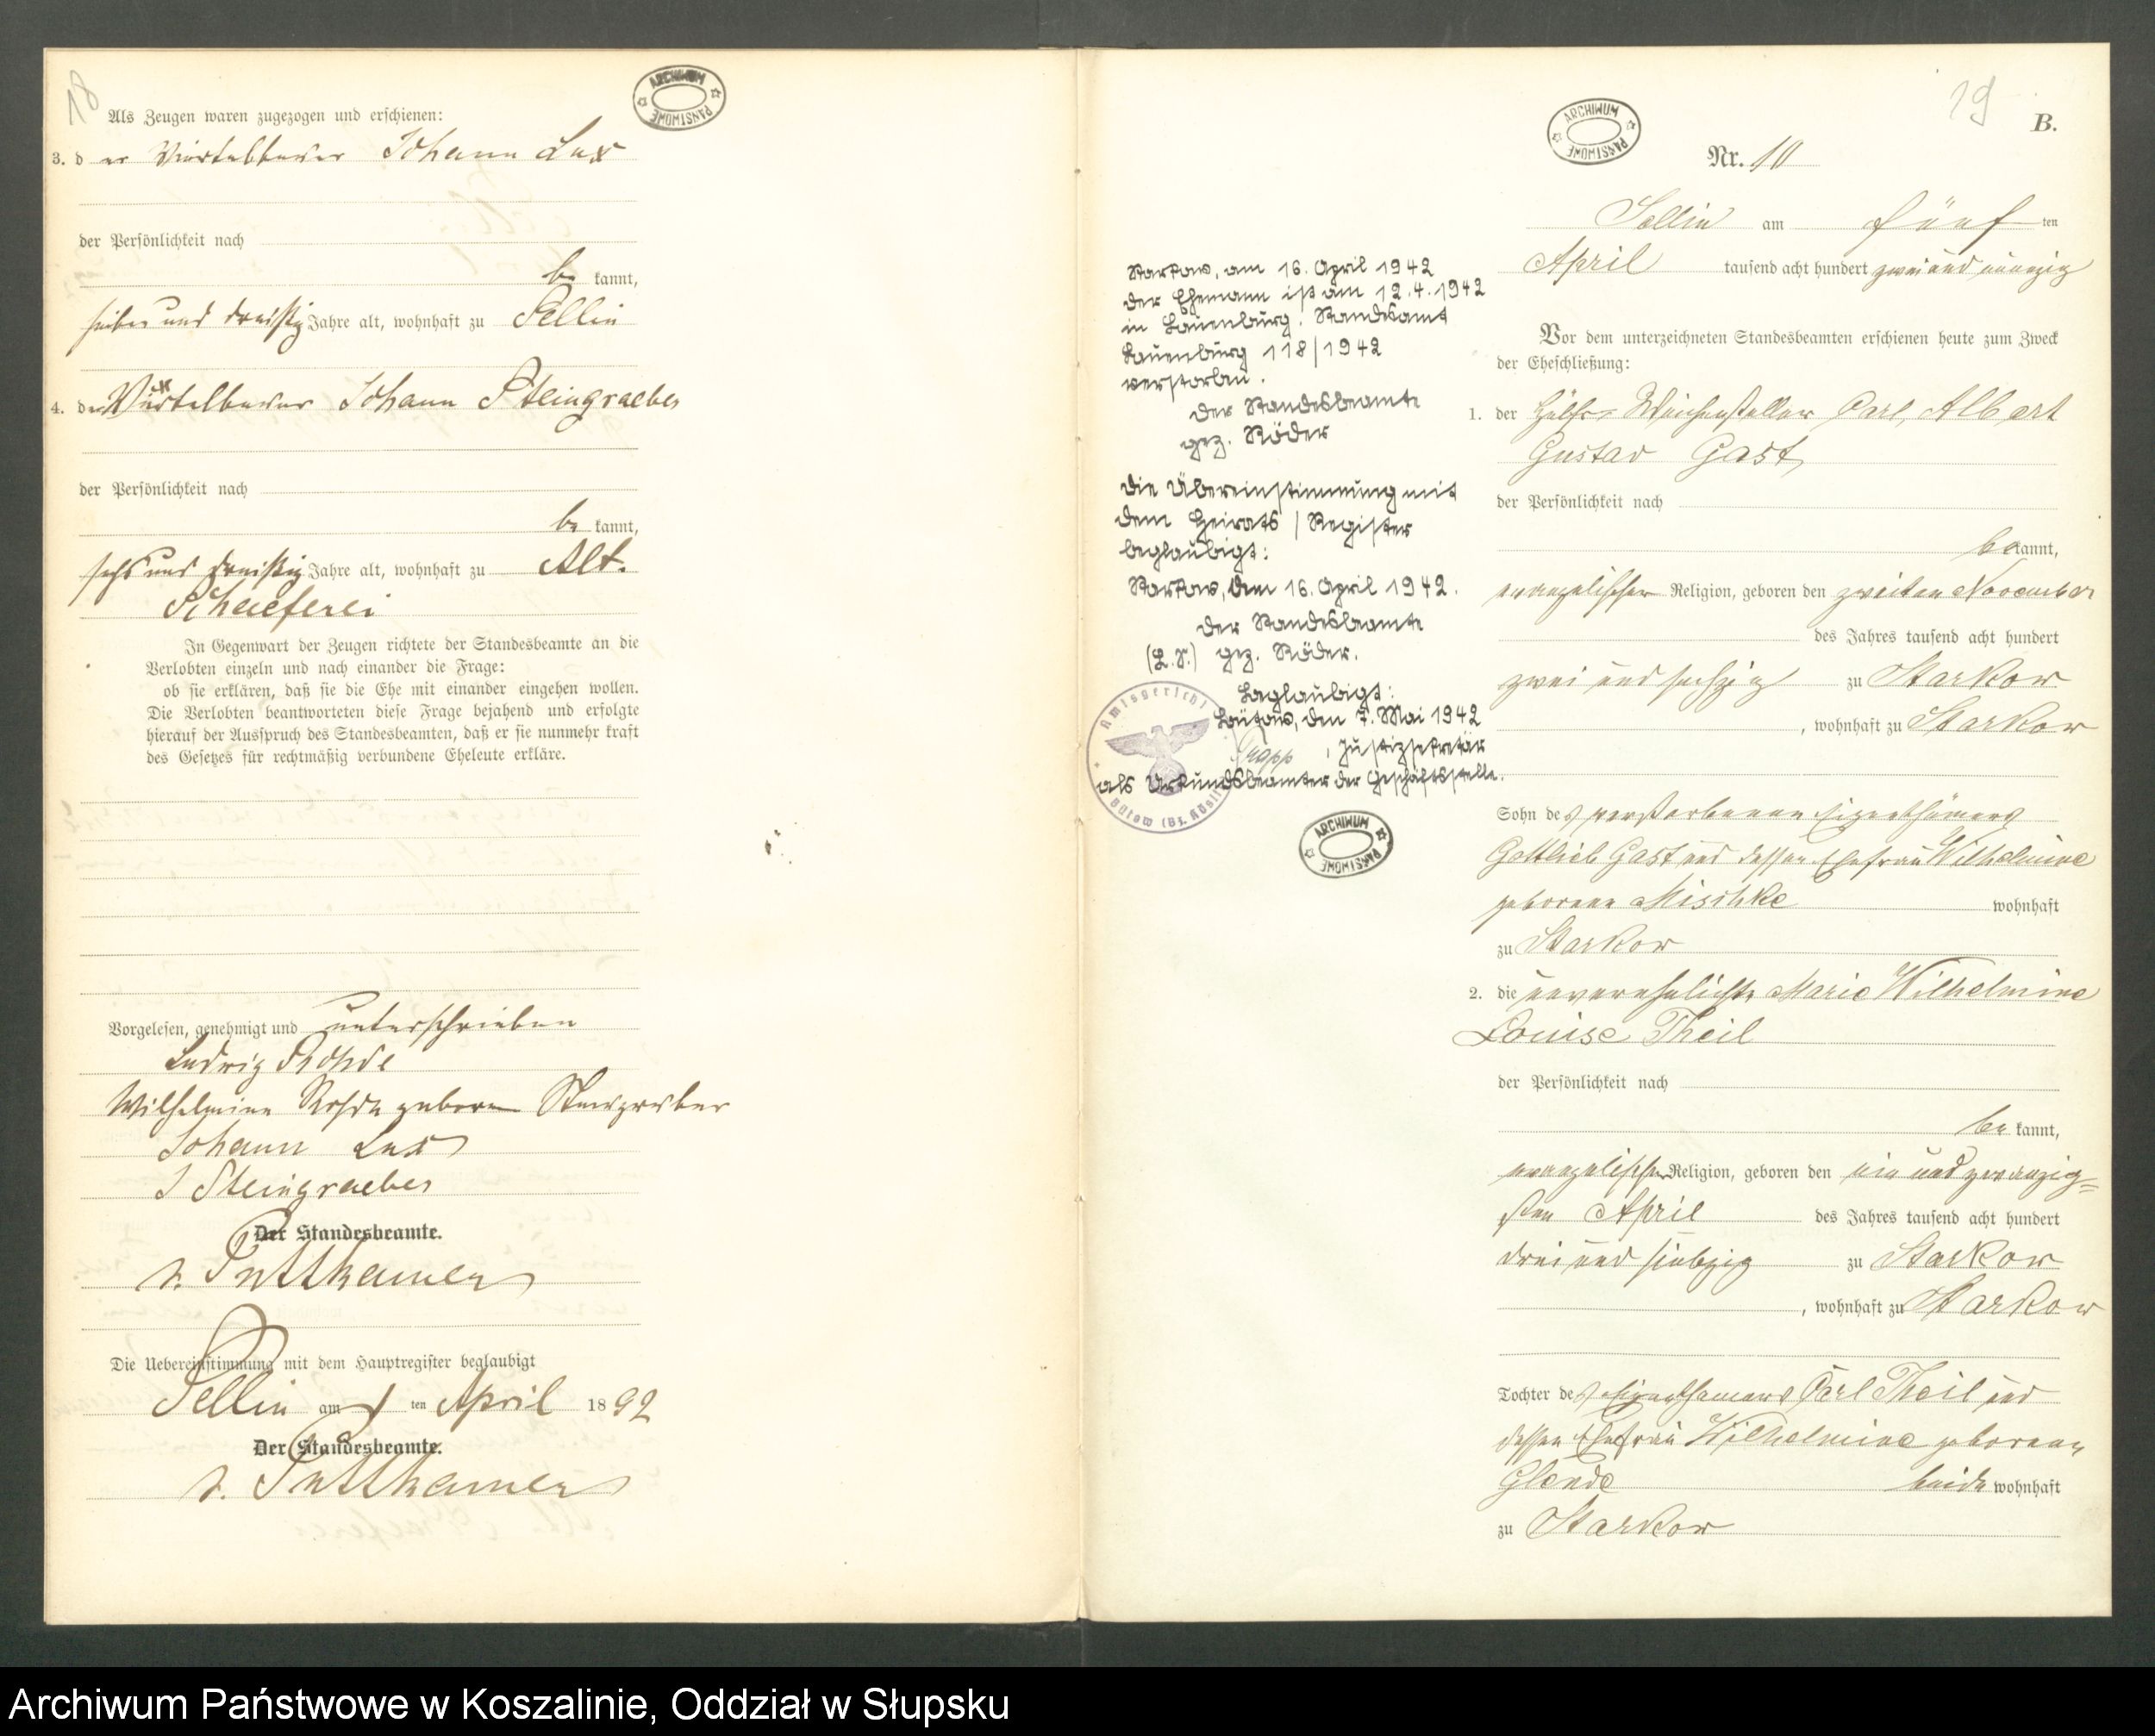 18
ARCHIWUM PAŃSTWOWE
Als Zeugen waren zugezogen und erschienen:
3. der Viertelbauer Johann Lux
der Persönlichkeit nach
bekannt,
sieben und dreißig Jahre alt, wohnhaft zu Sellin
4. der Viertelbauer Johann Steingraeber
der Persönlichkeit nach
bekannt,
sechs und dreißig Jahre alt, wohnhaft zu Alt.
Schaeferei
In Gegenwart der Zeugen richtete der Standesbeamte an die
Verlobten einzeln und nach einander die Frage:
ob sie erklären, daß sie die Ehe mit einander eingehen wollen.
Die Verlobten beantworteten diese Frage bejahend und erfolgte
hierauf der Ausspruch des Standesbeamten, daß er sie nunmehr kraft
des Gesetzes für rechtmäßig verbundene Eheleute erkläre.
Vorgelesen, genehmigt und unterschrieben
Ludwig Rohde
Wilhelmine Rohde geboren Steingräber
Johann Lux
J Steingraeber
Der Standesbeamte.
v. Puttkamer
Die Uebereinstimmung mit dem Hauptregister beglaubigt
Sellin am 1 ten April 1892
Der Standesbeamte.
v. Puttkamer
19
B.
ARCHIWUM PAŃSTWOWE
Nr. 10
Sellin am fünften
April tausend acht hundert zwei und neunzig
Vor dem unterzeichneten Standesbeamten erschienen heute zum Zweck
der Eheschließung:
1. der Hülfs-Weichensteller Carl, Albert
Gustav Gast
der Persönlichkeit nach
bekannt,
evangelischer Religion, geboren den zweiten November
des Jahres tausend acht hundert
zwei und sechzig zu Starkow
, wohnhaft zu Starkow
Sohn des verstorbenen Eigenthümers
Gottlieb Gast und dessen Ehefrau Wilhelmine
geborene Mischke wohnhaft
zu Starkow
2. die unverehelichte Marie Wilhelmine
Louise Theil
der Persönlichkeit nach
bekannt,
evangelischer Religion, geboren den ein und zwanzig=
sten April des Jahres tausend acht hundert
drei und siebzig zu Starkow
, wohnhaft zu Starkow
Tochter des Eigenthümers Carl Theil und
dessen Ehefrau Wilhelmine geborenen
Glende beide wohnhaft
zu Starkow
Starkow, am 16. April 1942
Der Ehemann ist am 12.4.1942
in Lauenburg, Standesamt
Lauenburg 118/1942
verstorben.
Der Standesbeamte
gez. Röder
Die Übereinstimmung mit
dem Heirats/Register
beglaubigt:
Starkow, den 16. April 1942.
Der Standesbeamte
(L.S.) gez. Röder.
Beglaubigt:
Bütow, den 7. Mai 1942
, Justizsekretär
als Urkundsbeamter der Geschäftsstelle.
Amtsgericht Bütow (Bz. Köslin)
ARCHIWUM PAŃSTWOWE
Archiwum Państwowe w Koszalinie, Oddział w Słupsku